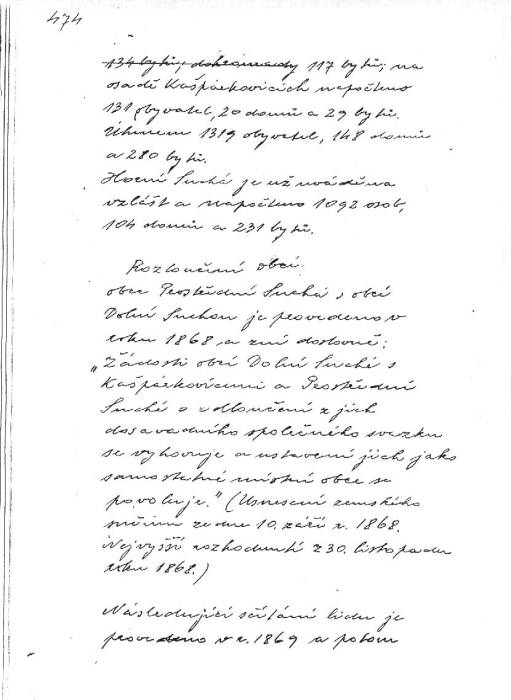 474
134 bytů, 117 bytů; na
osadě Kašpárkovicích napočteno
131 obyvatel, 20 domů a 29 bytů.
Úhrnem 1319 obyvatel, 148 domů
a 280 bytů.
Horní Suchá je už uváděna
vzlášť a napočteno 1092 osob,
104 domů a 231 bytů.
Rozloučení obcí.
obce Prostřední Suchá s obcí
Dolní Suchou je provedeno v
roku 1868 a zní doslovně:
„Žádosti obcí Dolní Suché s
Kašpárkovicemi a Prostřední
Suché o odloučení z jich
dosavadního společného svazku
se vyhovuje a ustavení jich jako
samostatné místní obce se
povoluje." (Usnesení zemského
sněmu ze dne 10. září r. 1868.
Nejvyšší rozhodnutí z 30. listopadu
roku 1868.)
Následující sčítání lidu je
provedeno v r. 1869 a potom